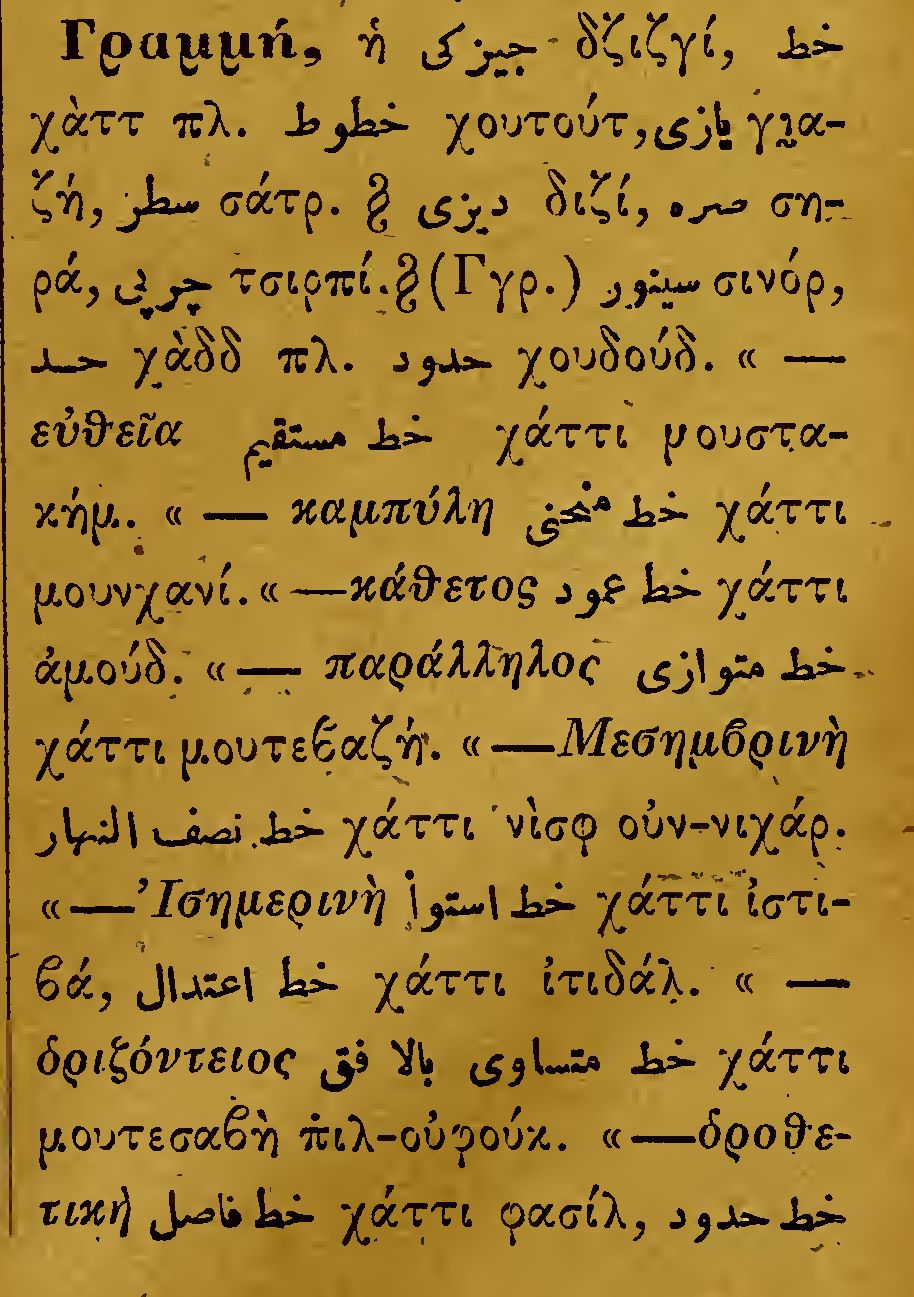 Γραμμή, ἡ جیزكی δζιζγί, خط
χὰττ πλ. خطوط χουτούτ, یازی γι̯α-
ζή, سطر σάτρ. § دیزی διζί, صره ση-
ρά, چرپی τσιρπί. § (Γγρ.) سینور σινόρ,
حد χὰδδ πλ. حدود χουδούδ. « —
εὐθεῖα خط مستقیم χάττι μουστα-
κήμ. « — καμπύλη خط منحنی χάττι
μουνχανί. « — κάθετος خط عمود χάττι
ἀμούδ. « — παράλληλος خط متوازی
χάττι μουτεϐαζή. « — Μεσημϐρινὴ
خط نصف النهار χάττι νὶσφ οὐν-νιχάρ.
« — Ἰσημερινὴ خط استوأ χάττι ἰστι-
ϐά, خط اعتدال χάττι ἰτιδάλ. « —
ὁριζόντειος خط متساوی بالافق χάττι
μουτεσαϐὴ πιλ-οὐφούκ. « — ὁροθε-
τικὴ خط فاصل χάττι φασίλ, خط حدود